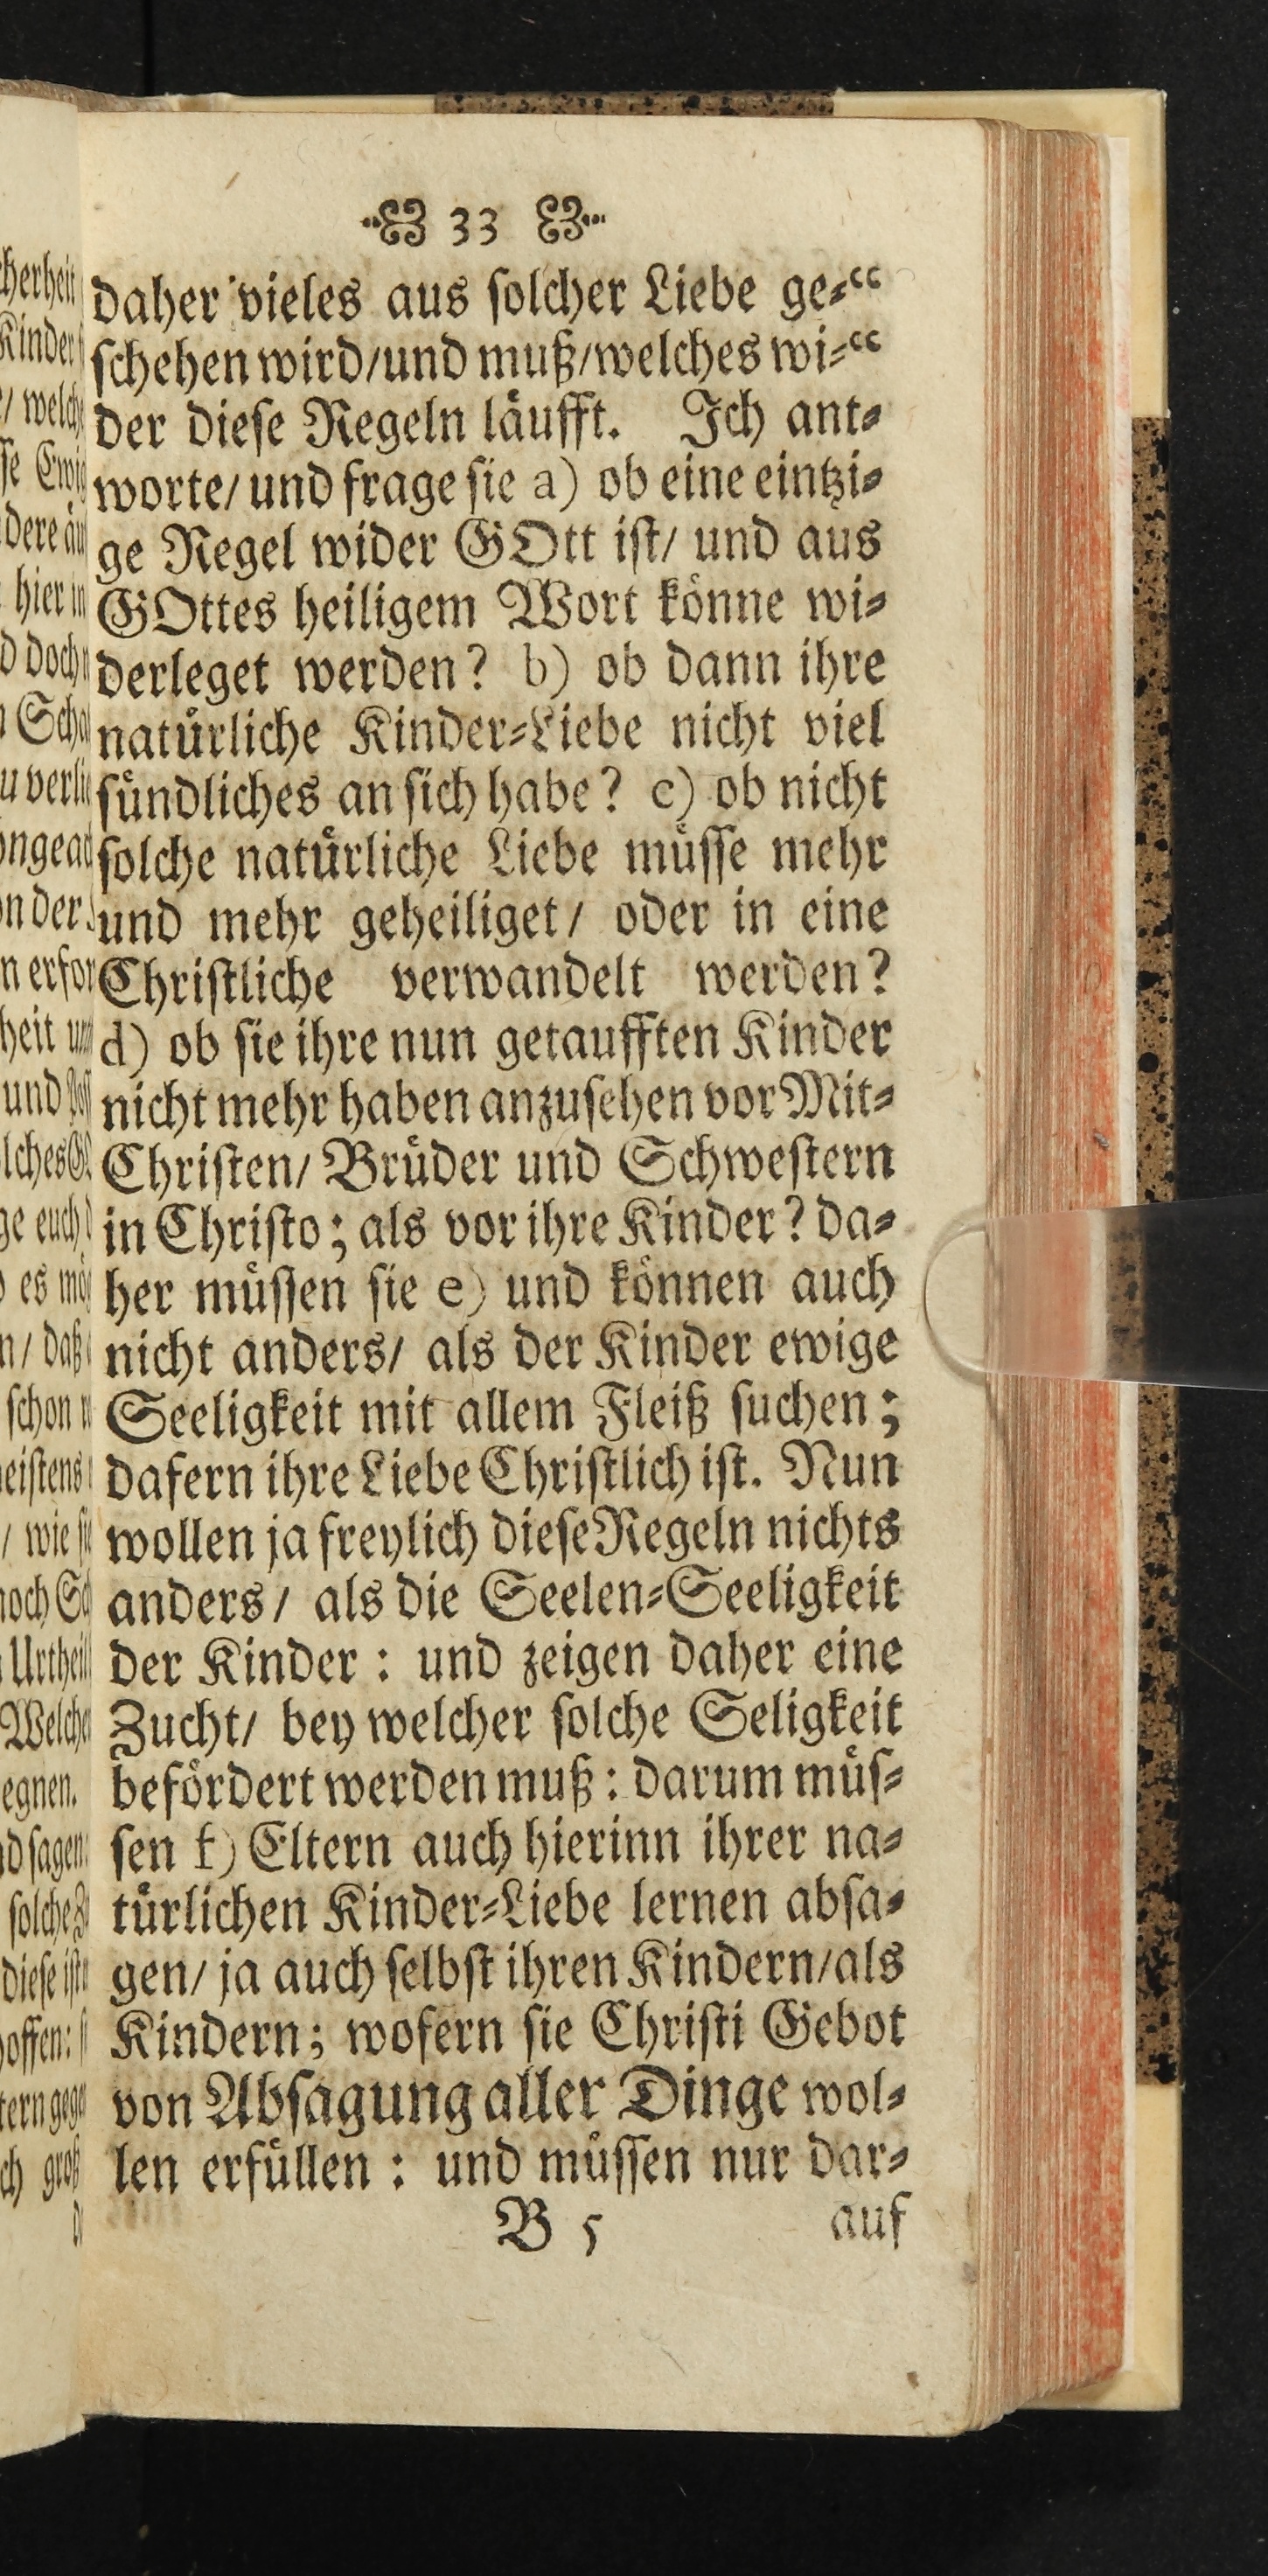 33
daher vieles aus ſolcher Liebe ge⸗“
ſchehen wird/und muß/welches wi⸗“
der dieſe Regeln laͤufft. Ich ant⸗
worte/ und frage ſie a) ob eine eintzi⸗
ge Regel wider GOtt iſt/ und aus
GOttes heiligem Wort koͤnne wi⸗
derleget werden? b) ob dann ihre
natuͤrliche Kinder⸗Liebe nicht viel
ſuͤndliches an ſich habe? c) ob nicht
ſolche natuͤrliche Liebe muͤſſe mehr
und mehr geheiliget/ oder in eine
Chriſtliche verwandelt werden?
d) ob ſie ihre nun getaufften Kinder
nicht mehr haben anzuſehen vor Mit⸗
Chriſten/ Bruͤder und Schweſtern
in Chriſto; als vor ihre Kinder? da⸗
her muͤſſen ſie e) und koͤnnen auch
nicht anders/ als der Kinder ewige
Seeligkeit mit allem Fleiß ſuchen;
dafern ihre Liebe Chriſtlich iſt. Nun
wollen ja freylich dieſe Regeln nichts
anders/ als die Seelen⸗Seeligkeit
der Kinder: und zeigen daher eine
Zucht/ bey welcher ſolche Seligkeit
befoͤrdert werden muß: darum muͤſ⸗
ſen f) Eltern auch hierinn ihrer na⸗
tuͤrlichen Kinder⸗Liebe lernen abſa⸗
gen/ ja auch ſelbſt ihren Kindern/als
Kindern; wofern ſie Chriſti Gebot
von Abſagung aller Dinge wol⸗
len erfuͤllen: und muͤſſen nur dar⸗
B 5 auf